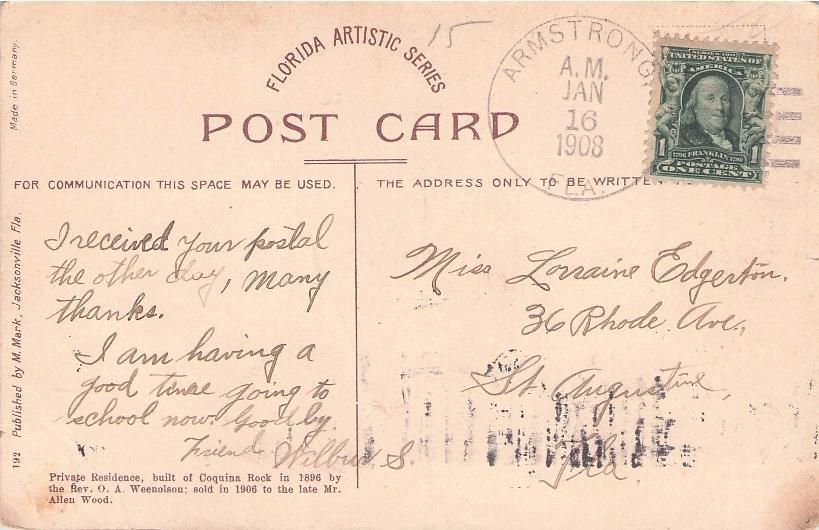 Made in Germany.
FLORIDA ARTISTIC SERIES
15
POST CARD
ARMSTRONG,
A.M.
JAN
16
1908
FLA.
SERIES 1902
UNITED STATES OF
AMERICA
1 1706 FRANKLIN 1790 1
POSTAGE
ONE CENT
FOR COMMUNICATION THIS SPACE MAY BE USED.
THE ADDRESS ONLY TO BE WRITTEN
I received your postal
the other day, many
thanks.
I am having a
good time going to
school now. Goodby.
Friend Wilbur S.
Miss Lorraine Edgerton.
36 Rhode Ave.,
St. Augustine,
Fla.
192 Published by M. Mark, Jacksonville Fla.
Private Residence, built of Coquina Rock in 1896 by
the Rev. O. A. Weenolson; sold in 1906 to the late Mr.
Allen Wood.